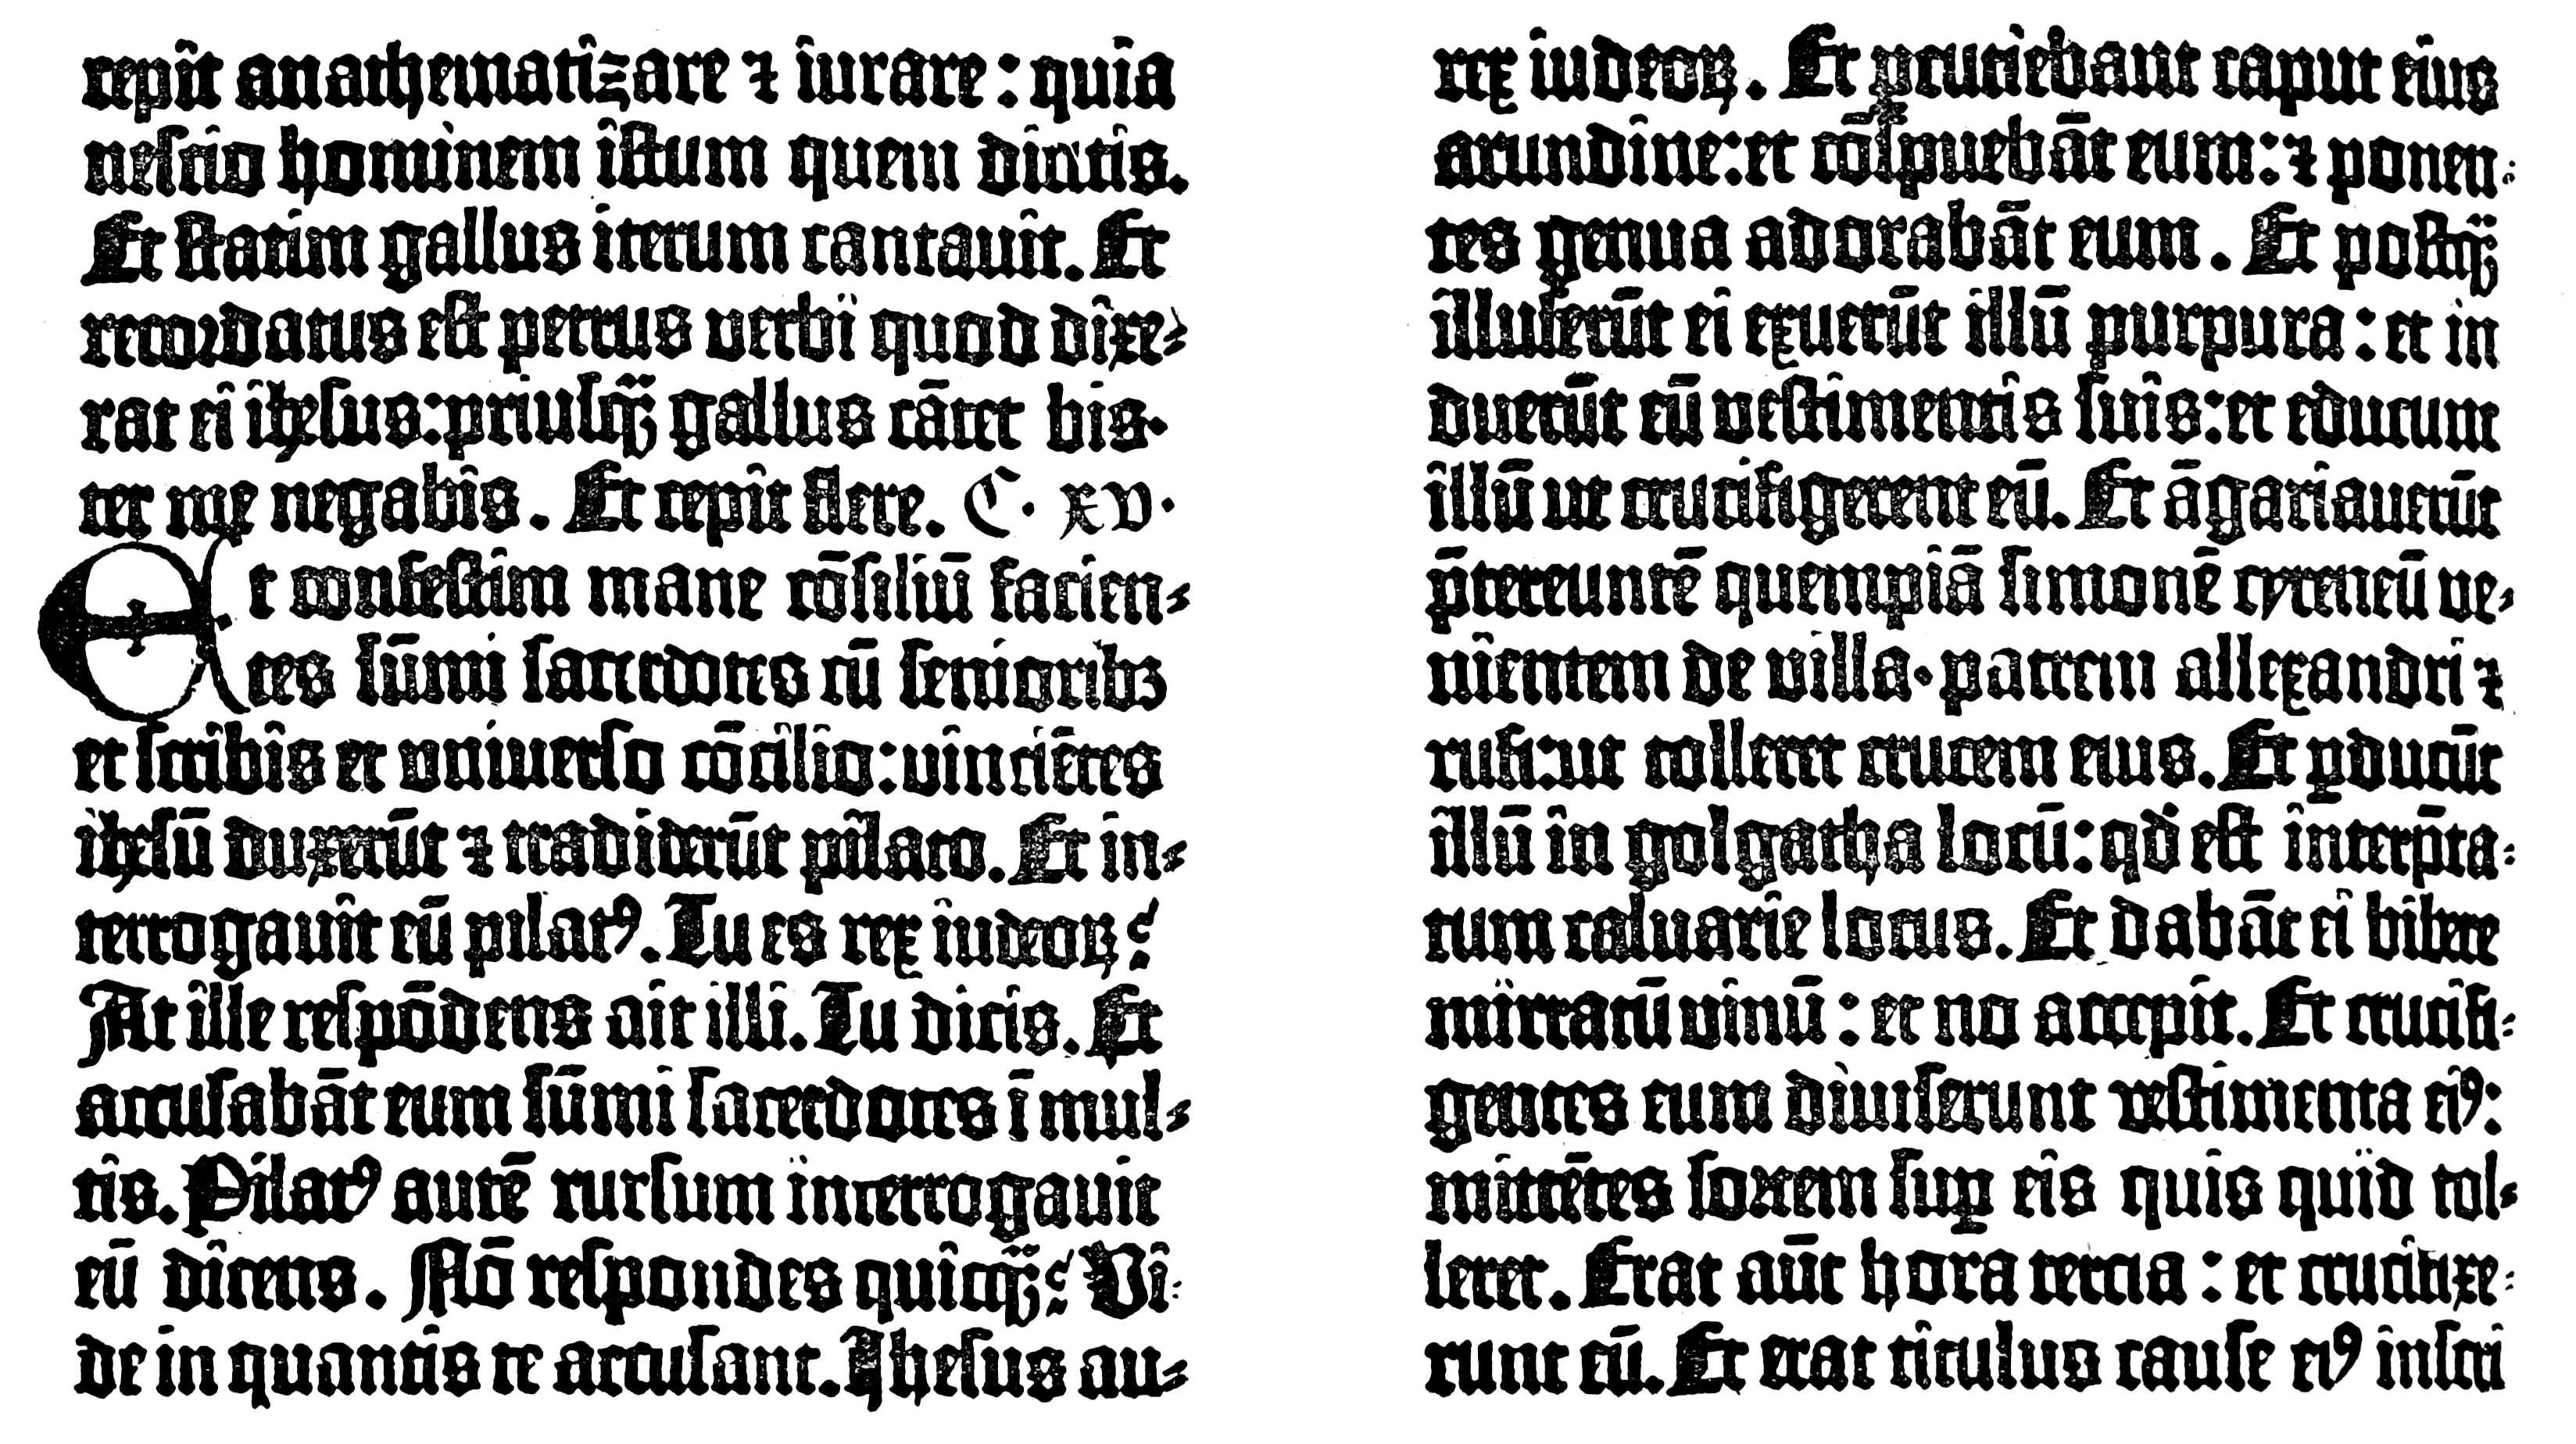 cepit anathematizare ⁊ iurare : quia
nescio hominem istum quem dicitis.
Et statim gallus iterum cantauit. Et
recordatus est petrus verbi quod dixe⸗
rat ei ihesus: priusqꝫ gallus cātet bis·
ter me negabis. Et cepit flere. C. xv.
Et confestim mane cōsiliū facien⸗
tes sūmi sacerdotes cū senioribꝫ
et scribis et vniuerso cōcilio: vinciētes
ihesū duxerūt ⁊ tradiderūt pilato. Et in⸗
terrogauit eū pilatꝰ. Tu es rex iudeoꝝ?
At ille respōdens ait illi. Tu dicis. Et
accusabāt eum sūmi sacerdotes ī mul⸗
tis. Pilatꝰ autē rursum interrogauit
eū dicens. Nō respondes quicqꝫ? Vi⸗
de in quantis te accusant. Ihesus au⸗
rex iudeoꝝ. Et ꝑcutiebant caput eius
arundine: et cōspuebāt eum: ⁊ ponen⸗
tes genua adorabāt eum. Et postqꝫ
illuserūt ei exuerūt illū purpura : et in
duerūt eū vestimentis suis: et educunt
illū ut crucifigerent eū. Et āgariauerūt
p̄tereuntē quempiā simonē cyreneū ve⸗
nientem de villa· patrem allexandri ⁊
rufi: ut tolleret crucem eius. Et ꝓducūt
illū in golgatha locū: qḋ est interp̄ta⸗
tum caluarie locus. Et dabāt ei bibere
mirratū vinū : et no accepit. Et crucifi⸗
gentes eum diuiserunt vestimenta eiꝰ:
mittētes sortem suꝑ eis quis quid tol⸗
leret. Erat aūt hora tercia : et crucifixe⸗
runt eū. Et erat titulus cause eiꝰ inscri